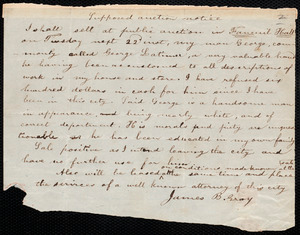 Supposed auction notice
2
I shall sell at public auction in Faneuil Hall
on Tuesday next 22nd inst, my man George, com
monly called George Latimer, a very valuable hand
he having been accustomed to all descriptions of
work in my house and store. I have refused six
hundred dollars in cash for him since I have
been in this city. Said George is a handsome man
in appearance, and being nearly white, and of
correct deportment. His morals and piety is unques
tionable as he has been educated in my own family
Sale positive as I intend leaving the city and
have no further use for him. conditions made known at the sale
Also will be leased at the same time and place
the services of a well known attorney of this city.
James B. Gray